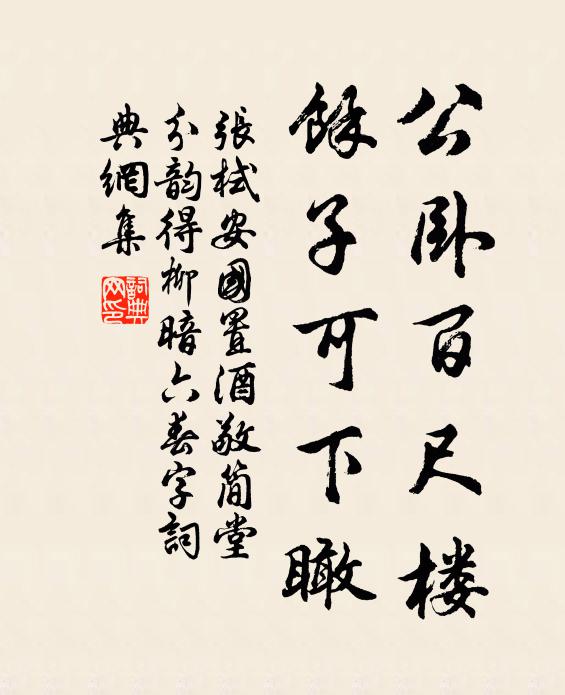 公卧百尺楼
餘子可下瞰
張栻安國置酒敬简堂
分韵得柳暗六春字詞
典網集
詞典网印